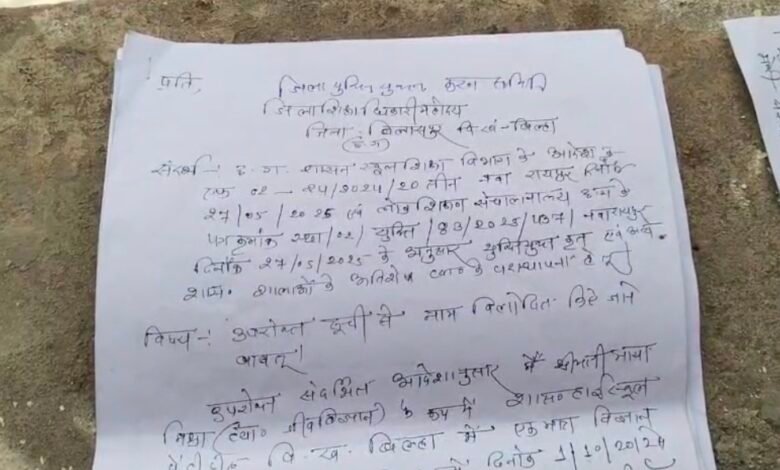 प्रति,
जिला युक्ति युक्त करण समिति
जिला शिक्षा अधिकारी महोदय
जिला - बिलासपुर वि.खं.- बिल्हा
(छ.ग)
संदर्भ - छ.ग. शासन स्कूल शिक्षा विभाग के आदेश क्र.
एफ 02 - 24/2024/20 तीन नवा रायपुर दिनाँक
27/05/2025 एवं लोक शिक्षण संचालनालय के
पत्र क्रमांक स्था/02/ युक्ति/83/2025/537/ नवारायपुर
दिनाँक 27/05/2025 के अनुसार युक्तियुक्त कृत एवं अन्य
शास. शालाओं के अतिशेष के पदस्थापना
विषय -: उपरोक्त सूची से नाम विलोपित किये जाने
बाबत्।
उपरोक्त संदर्भित आदेशानुसार मैं श्रीमती माया
मिश्रा (जीवविज्ञान) के रूप में शास. हाईस्कूल
वि. ख. बिल्हा में एक मात्र विज्ञान
दिनाँक 1/10/2024